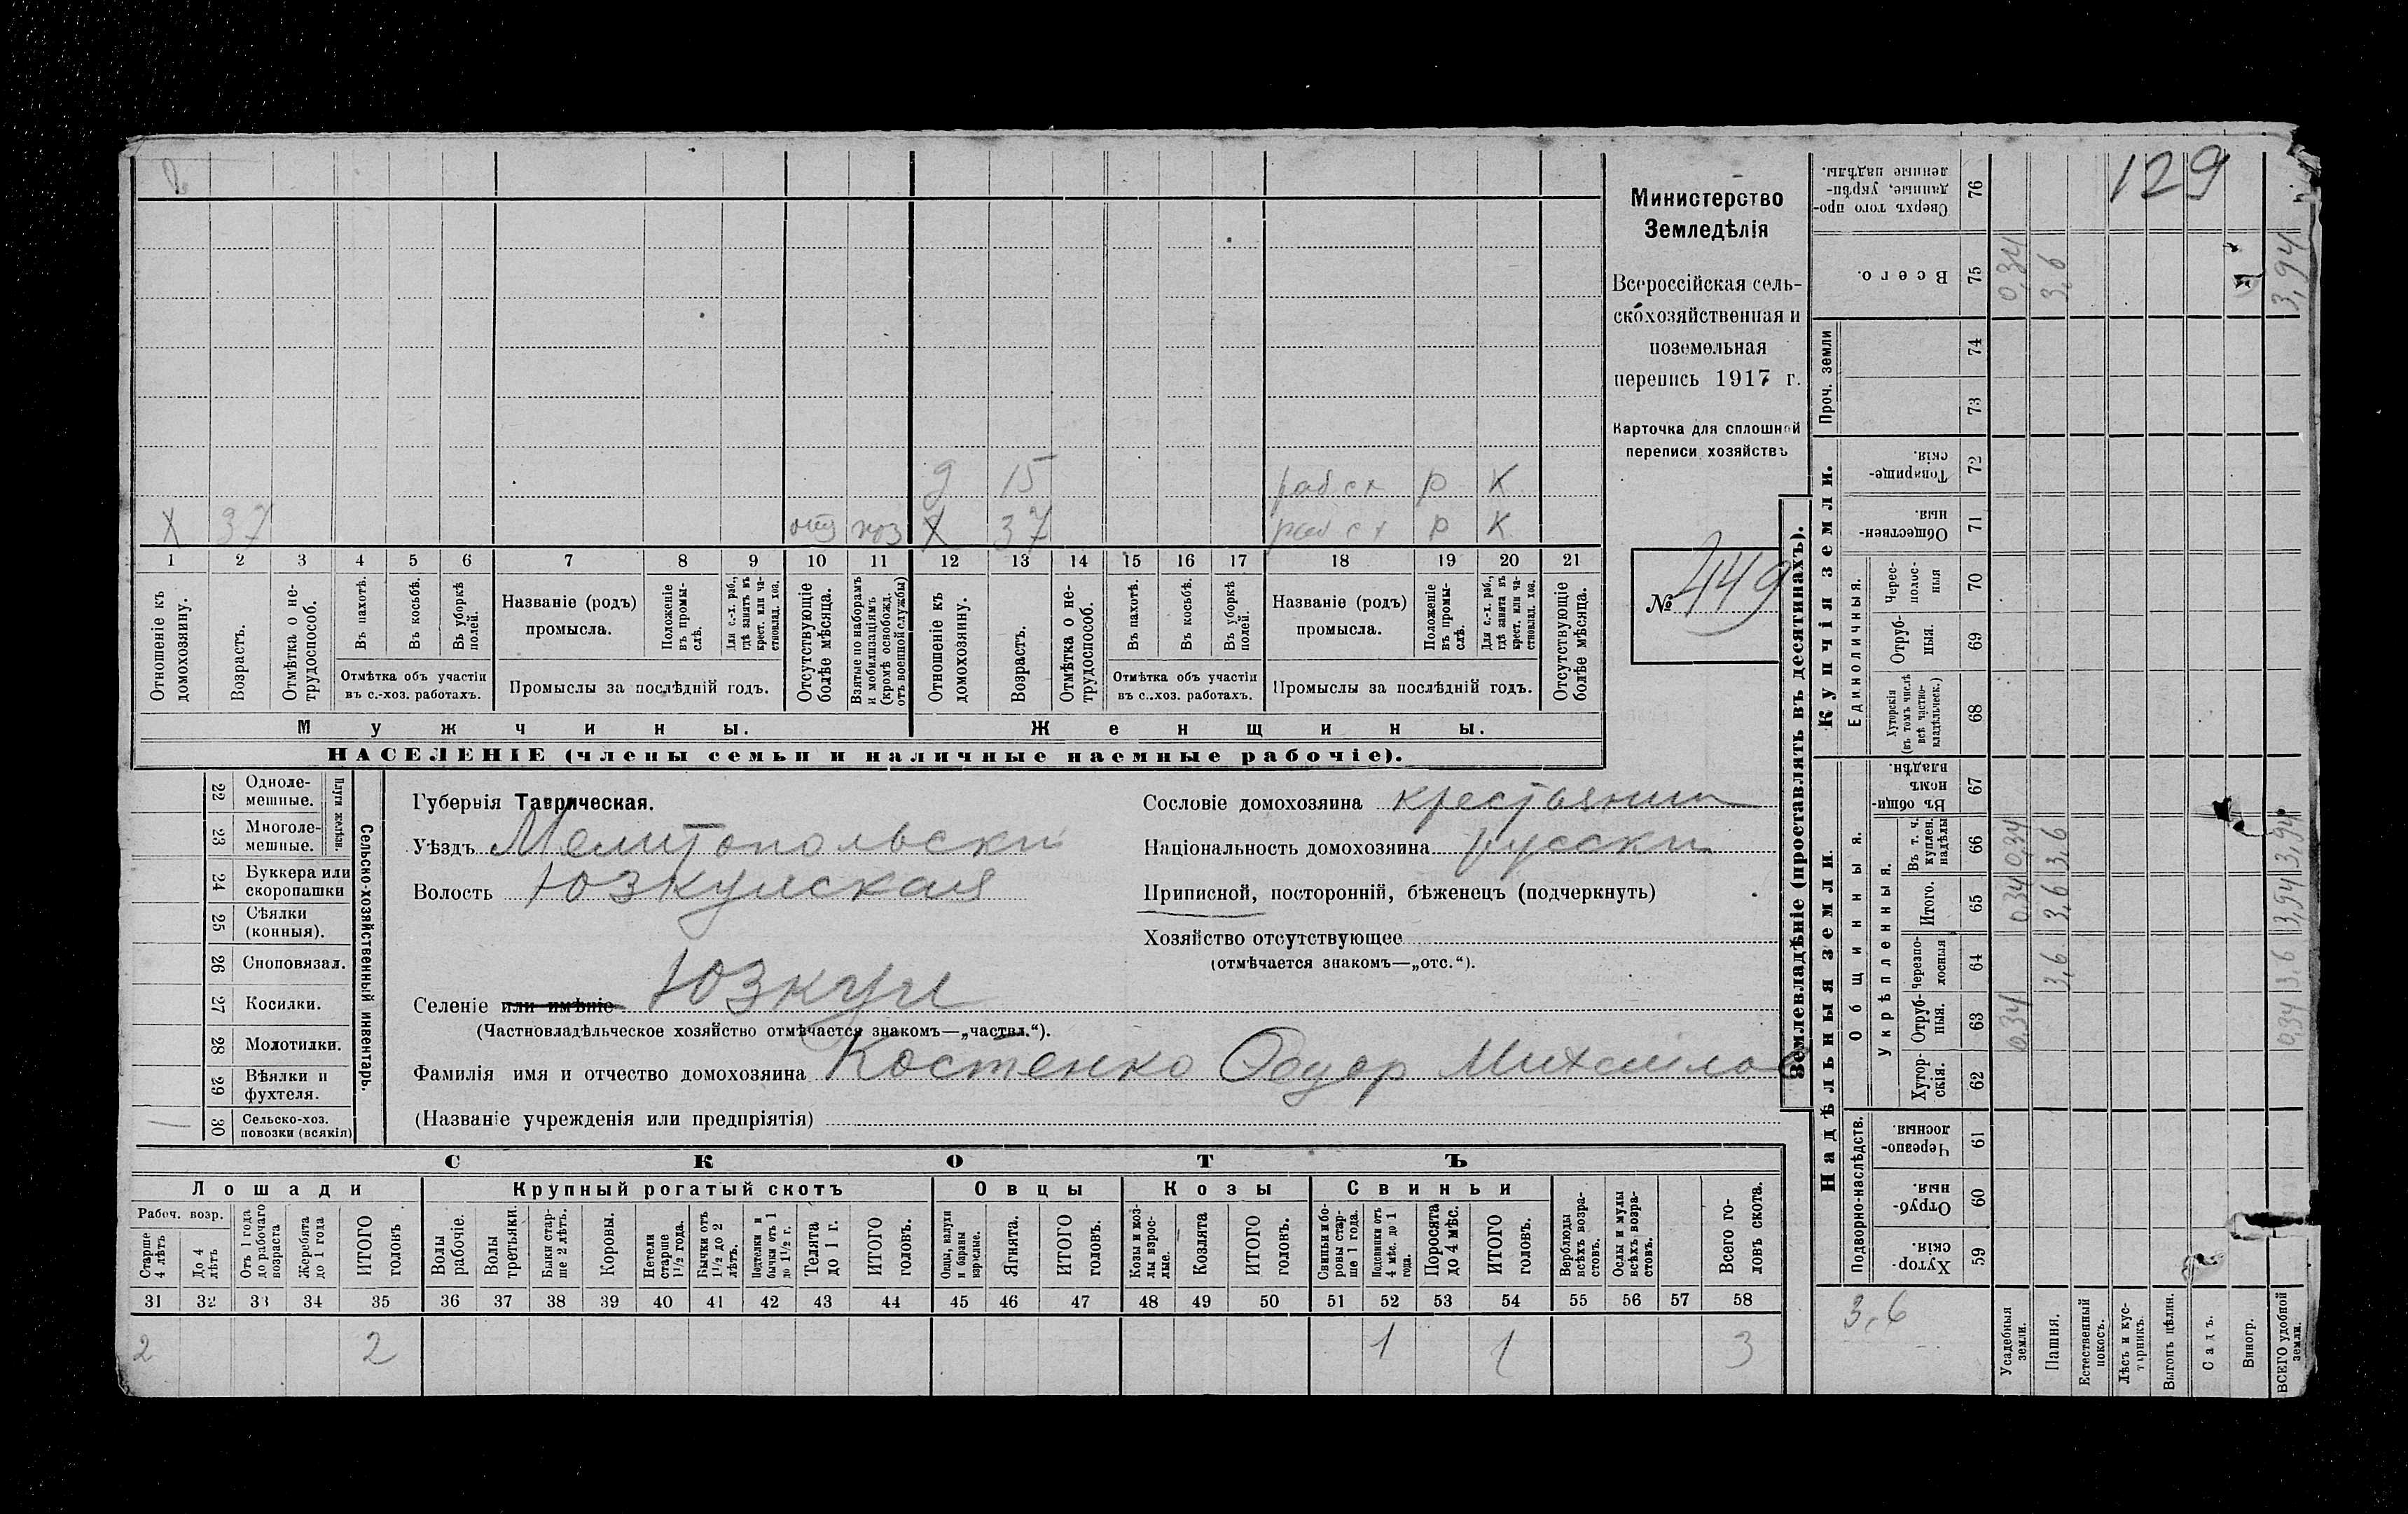 129
Министерство
Земледѣлія
Всероссійская сель-
скохозяйственная и
поземельная
перепись 1917 г.
Карточка для сплошной
переписи хозяйствъ
№ 449
д 15 раб ск р К
Х 37 отз моз Х 37 р К
1 2 3 4 5 6 7 8 9 10 11 12 13 14 15 16 17 18 19 20 21
Отношеніе къ домохозяину.
Возрастъ.
Отмѣтка о не-трудоспособ.
Въ пахотѣ.
Въ косьбѣ.
Въ уборкѣ полей.
Отмѣтка объ участіи
въ с.-хоз. работахъ.
Названіе (родъ)
промысла.
Положеніе въ промы-слѣ.
Для с.-х. раб., гдѣ занятъ въ крест. или ча-стновлад. хоз.
Промыслы за послѣдній годъ.
Отсутствующіе болѣе мѣсяца.
Взятые по наборамъ и мобилизаціямъ (кромѣ освобожд. отъ военной службы)
Отношеніе къ домохозяину.
Возрастъ.
Отмѣтка о не-трудоспособ.
Въ пахотѣ.
Въ косьбѣ.
Въ уборкѣ полей.
Отмѣтка объ участіи
въ с.-хоз. работахъ.
Названіе (родъ)
промысла.
Положеніе въ промы-слѣ.
Для с.-х. раб., гдѣ занята въ крест. или ча-стновлад. хоз.
Промыслы за послѣдній годъ.
Отсутствующіе болѣе мѣсяца.
Мужчины. Женщины.
НАСЕЛЕНІЕ (члены семьи и наличные наемные рабочіе).
Сельско-хозяйственный инвентарь.
Плуги желѣзн.
22 Одноле-мешные.
23 Многоле-мешные.
24 Буккера или скоропашки
25 Сѣялки (конныя).
26 Сноповязал.
27 Косилки.
28 Молотилки.
29 Вѣялки и фухтеля.
30 Сельско-хоз. повозки (всякія)
Губернія Таврическая.
Уѣздъ Мелитопольски
Волость Юзкуйская
Селеніе или имѣніе Юзкуи
(Частновладѣльческое хозяйство отмѣчается знакомъ—„частвл.“).
Фамилія имя и отчество домохозяина Костенко Федор Михайлов
(Названіе учрежденія или предпріятія)
Сословіе домохозяина крестьянин
Національность домохозяина русски
Приписной, посторонній, бѣженецъ (подчеркнуть)
Хозяйство отсутствующее
(отмѣчается знакомъ—„отс.“).
СКОТЪ
Лошади Крупный рогатый скотъ Овцы Козы Свиньи
Рабоч. возр.
Старше 4 лѣтъ
До 4 лѣтъ
Отъ 1 года до рабочаго возраста
Жеребята до 1 года
ИТОГО головъ
Волы рабочіе.
Волы третьяки.
Быки стар-ше 2 лѣтъ.
Коровы.
Нетели старше 1½ года.
Бычки отъ 1½ до 2 лѣтъ.
Подтелки и бычки отъ 1 до 1½ г.
Телята до 1 г.
ИТОГО головъ.
Овцы, валухи и бараны взрослые.
Ягнята.
ИТОГО головъ.
Козы и коз-лы взрос-лые.
Козлята
ИТОГО головъ.
Свиньи и бо-ровы стар-ше 1 года.
Подсвинки отъ 4 мѣс. до 1 года.
Поросята до 4 мѣс.
ИТОГО головъ.
Верблюды всѣхъ возра-стовъ.
Ослы и мулы всѣхъ возра-стовъ.
Всего го-ловъ скота.
31 32 33 34 35 36 37 38 39 40 41 42 43 44 45 46 47 48 49 50 51 52 53 54 55 56 57 58
2 2 1 1 3
Землевладѣніе (проставлять въ десятинахъ).
Сверхъ того про-данные, укрѣп-ленные надѣлы. 76
Всего. 75 0,34 3,6 3,94
Проч. земли 74 73
Купчія земли.
Товарище-скія. 72
Обществен-ныя. 71
Единоличныя.
Черес-полос-ныя 70
Отруб-ныя. 69
Хуторскія (въ томъ числѣ всѣ частно-владѣльческ.) 68
Надѣльныя земли
Общинныя.
Въ общин-номъ владѣн. 67
Укрѣпленныя.
Въ т. ч. куплен. надѣлы 66 0,34 3,6 3,94
Итого. 65 0,34 3,6 3,94
Черезпо-лосныя 64 3,6 3,6
Отруб-ныя. 63 0,34 0,34
Хутор-скія. 62
Подворно-наслѣдств.
Черезпо-лосныя. 61
Отруб-ныя. 60
Хутор-скія. 59
3,6
Усадебныя земли.
Пашня.
Естественный покосъ.
Лѣсъ и кус-тарникъ.
Выгонъ цѣлин.
Садъ.
Виногр.
ВСЕГО удобной земли.